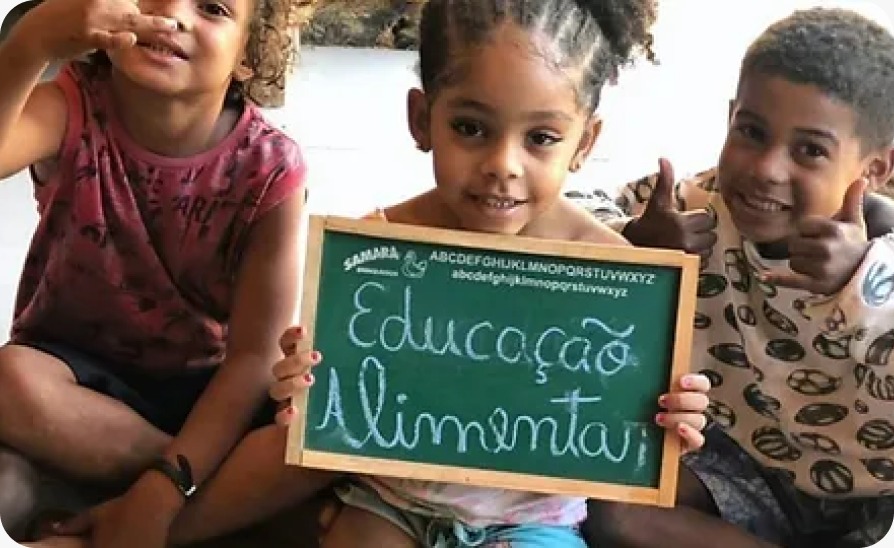 SAMARA
ABCDEFGHIJKLMNOPQRSTUVWXYZ
abcdefghijklmnopqrstuvwxyz
Educação
Alimentar